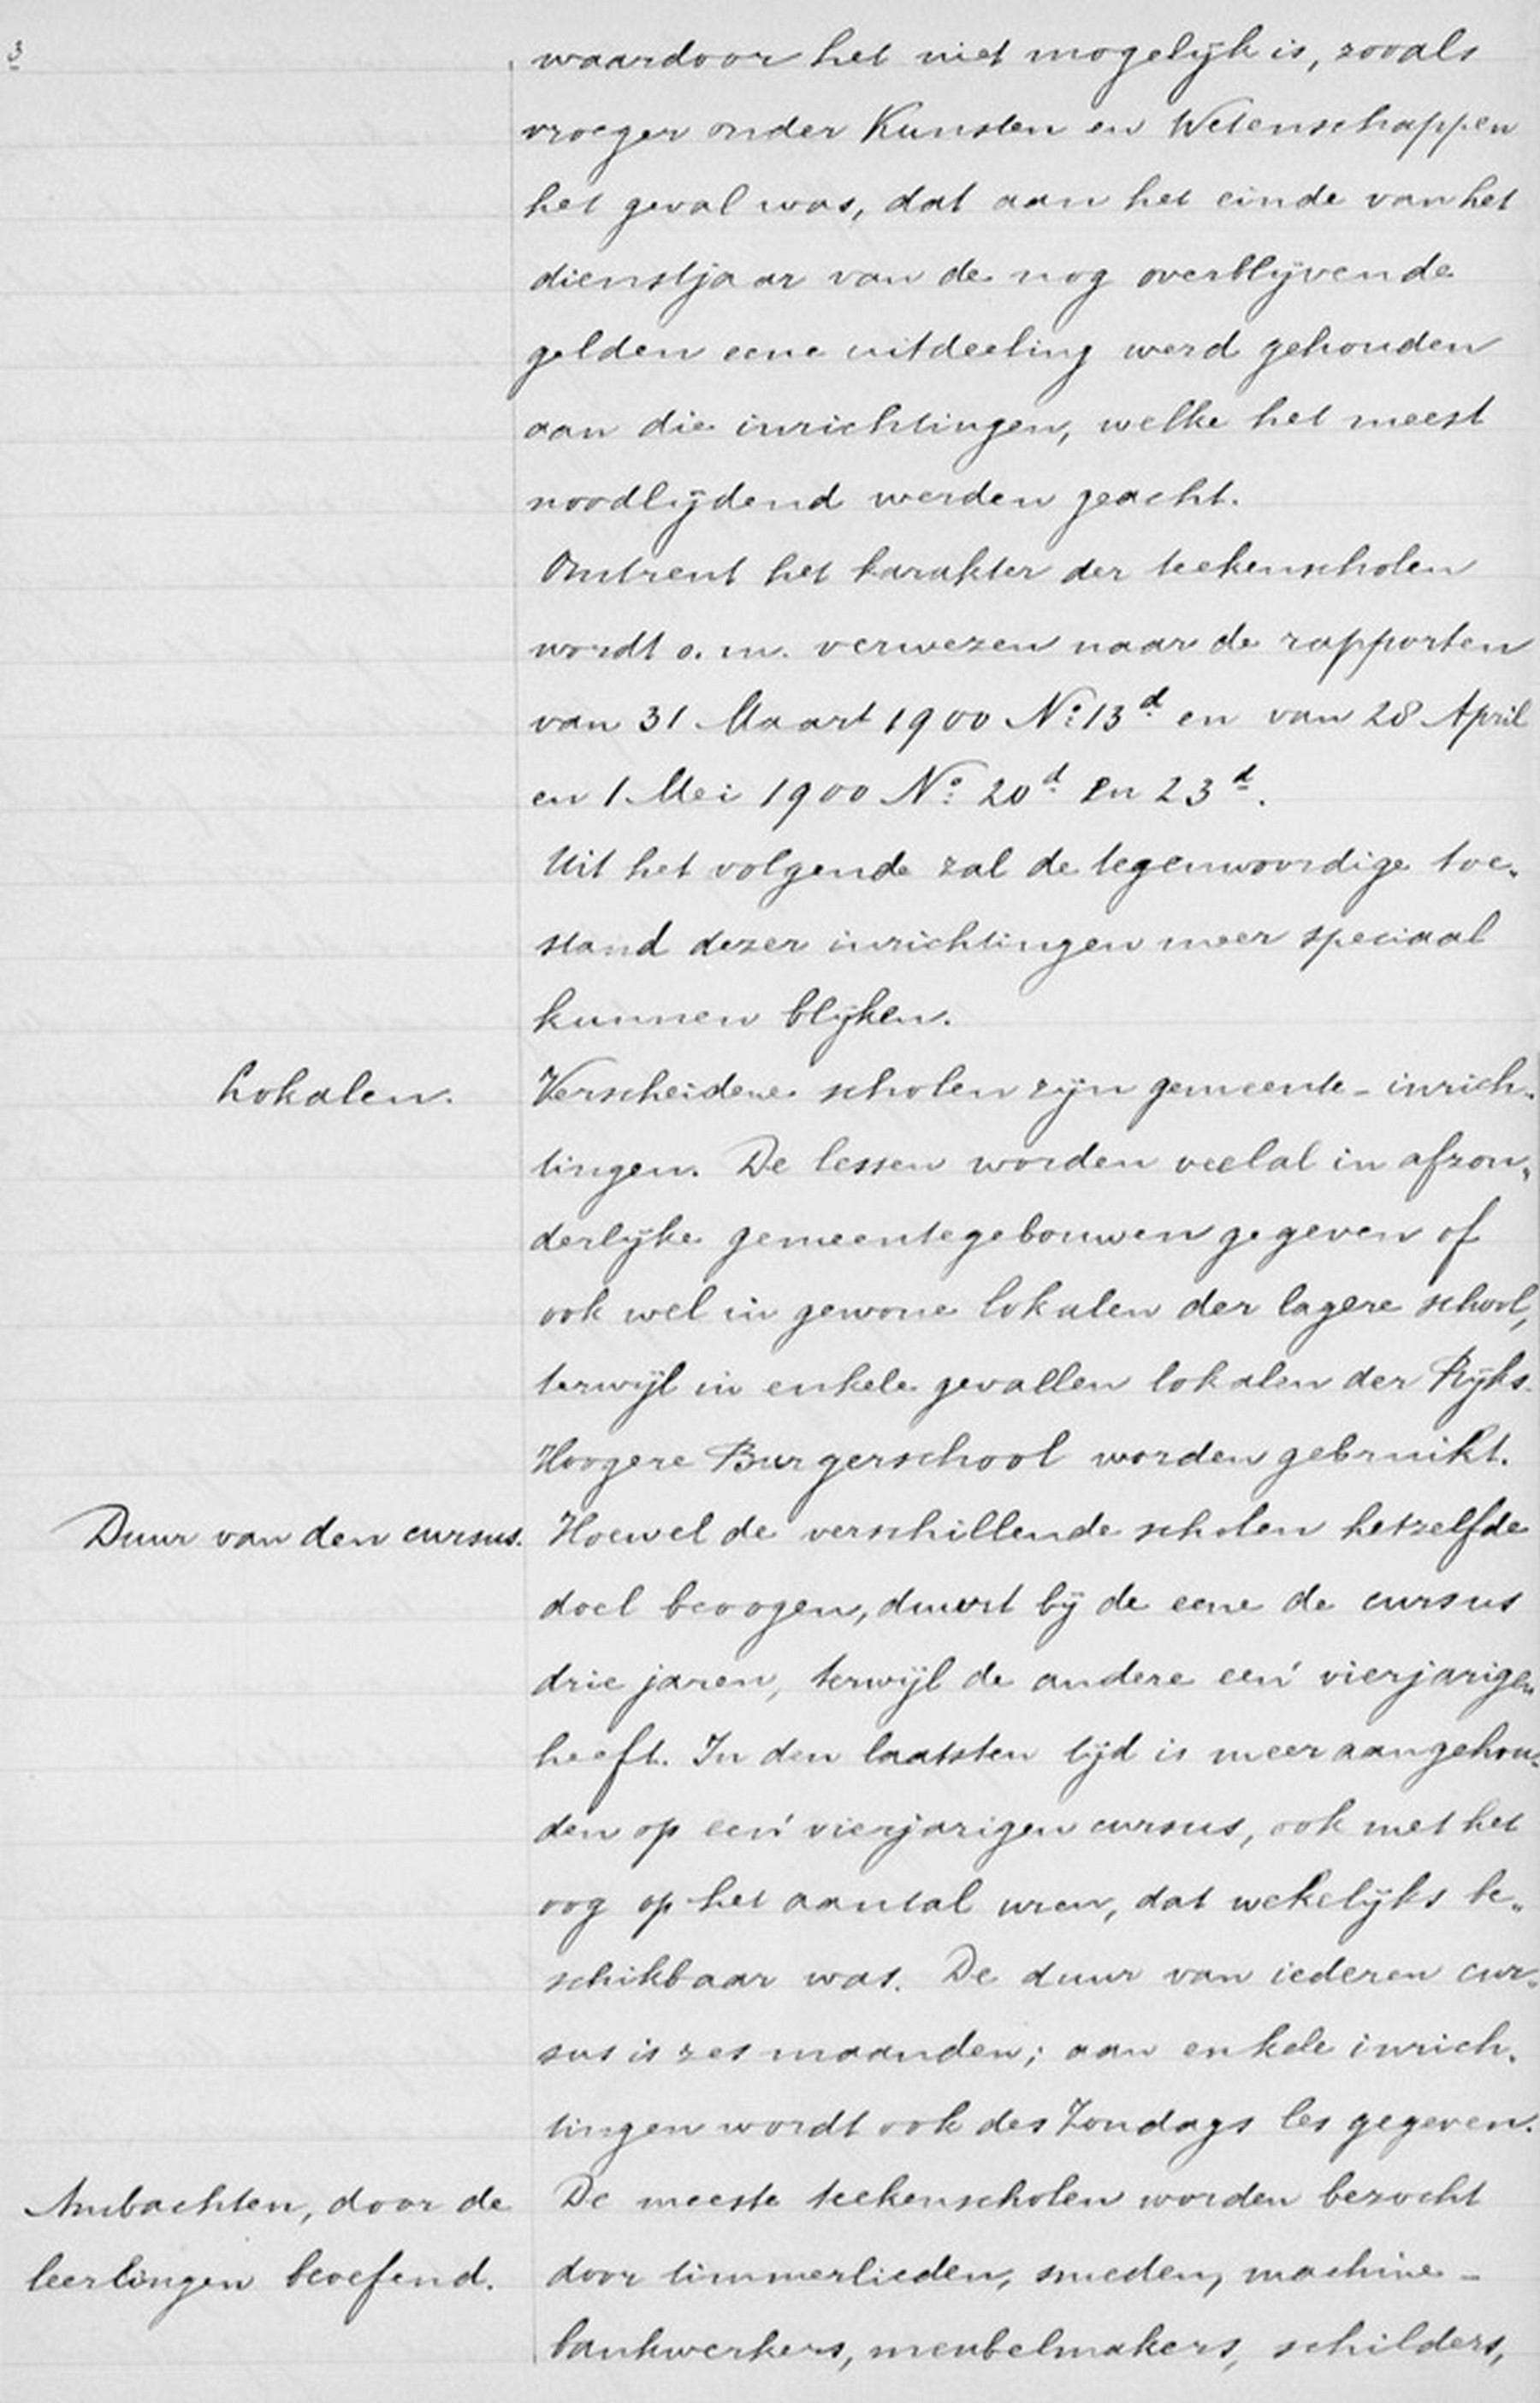 3
waardoor het niet mogelijk is, zooals
vroeger onder Kunsten en Wetenschappen
het geval was, dat aan het einde van het
dienstjaar van de nog overblijvende
gelden eene uitdeeling werd gehouden
aan die inrichtingen, welke het meest
noodlijdend werden geacht.
Omtrent het karakter der teekenscholen
wordt o.m. verwezen naar de rapporten
van 31 Maart 1900 No. 13d en van 28 April
en 1 Mei 1900 No. 20d en 23d.
Uit het volgende zal de tegenwoordige toe„
stand dezer inrichtingen meer speciaal
kunnen blijken.
Lokalen.
Verscheidene scholen zijn gemeente-inrich„
tingen. De lessen worden veelal in afzon„
derlijke gemeentegebouwen gegeven of
ook wel in gewone lokalen der lagere school,
terwijl in enkele gevallen lokalen der Rijks-
Hoogere Burgerschool worden gebruikt.
Duur van den cursus.
Hoewel de verschillende scholen hetzelfde
doel beoogen, duurt bij de eene de cursus
drie jaren, terwijl de andere een' vierjarigen
heeft. In den laatsten tijd is meer aangehou„
den op een' vierjarigen cursus, ook met het
oog op het aantal uren, dat wekelijks be„
schikbaar was. De duur van iederen cur„
sus is zes maanden; aan enkele inrich„
tingen wordt ook des Zondags les gegeven.
Ambachten, door de
leerlingen beoefend.
De meeste teekenscholen worden bezocht
door timmerlieden, smeden, machine-
bankwerkers, meubelmakers, schilders,